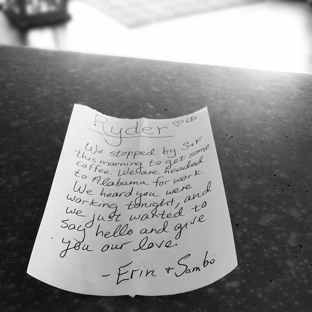 Ryder ♡
We stopped by S+F
this morning to get some
coffee. We are headed
to Alabama for work
We heard you were
working tonight, and
we just wanted to
say hello and give
you our love.
- Erin + Sambo